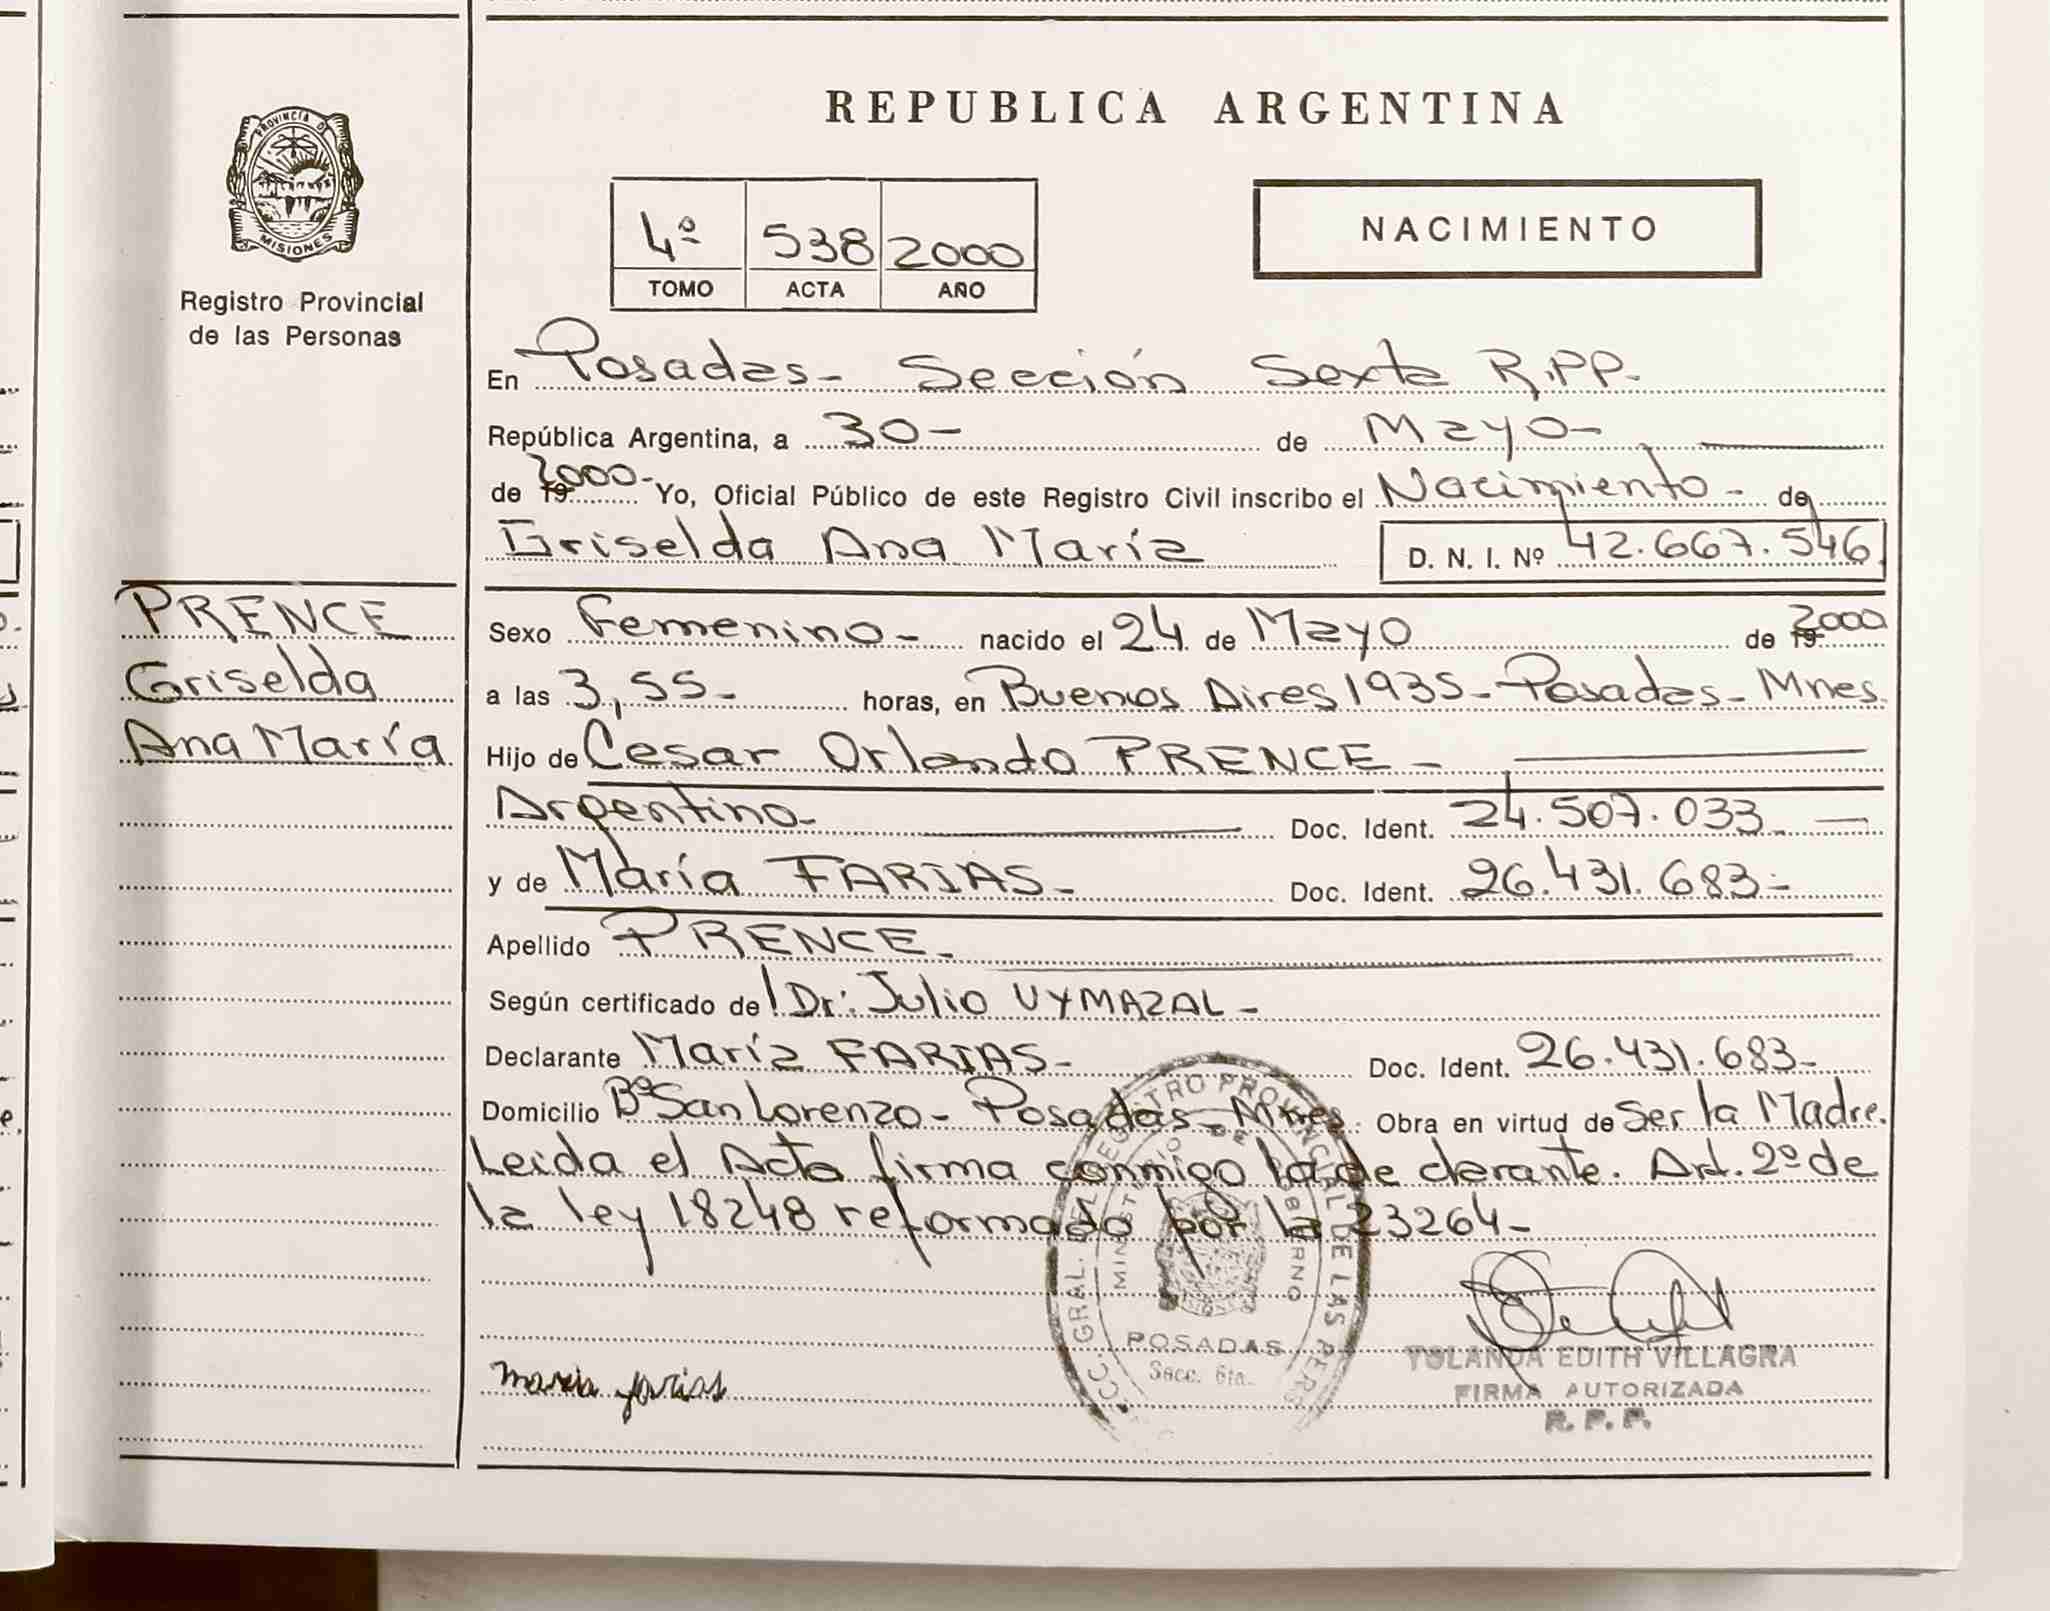 REPUBLICA ARGENTINA
PROVINCIA DE
MISIONES
Registro Provincial
de las Personas
4º 538 2000
TOMO ACTA AÑO
NACIMIENTO
En Posadas - Sección Sexta R.P.P.
República Argentina, a 30 - de Mayo -
de 19 2000 - Yo, Oficial Público de este Registro Civil inscribo el Nacimiento - de
Griselda Ana María D. N. I. Nº 42.667.546
PRENCE
Griselda
Ana María
Sexo Femenino - nacido el 24 de Mayo de 19 2000
a las 3,55 - horas, en Buenos Aires 1935 - Posadas - Mnes.
Hijo de Cesar Orlando PRENCE -
Argentino - Doc. Ident. 24.507.033
y de María FARIAS - Doc. Ident. 26.431.683 -
Apellido PRENCE -
Según certificado de l Dr: Julio VYMAZAL -
Declarante María FARIAS - Doc. Ident. 26.431.683 -
Domicilio Bº San Lorenzo - Posadas - Mnes. Obra en virtud de Ser la Madre.
Leida el Acta firma conmigo la de clarante. Art. 2º de
la ley 18248 reformado por la 23264 -
CC. GRAL. DEL REGISTRO PROVINCIAL DE LAS PERS
MINISTERIO DE GOBIERNO
POSADAS
Secc. 6ta.
maria farias
YOLANDA EDITH VILLAGRA
FIRMA AUTORIZADA
R. P. P.